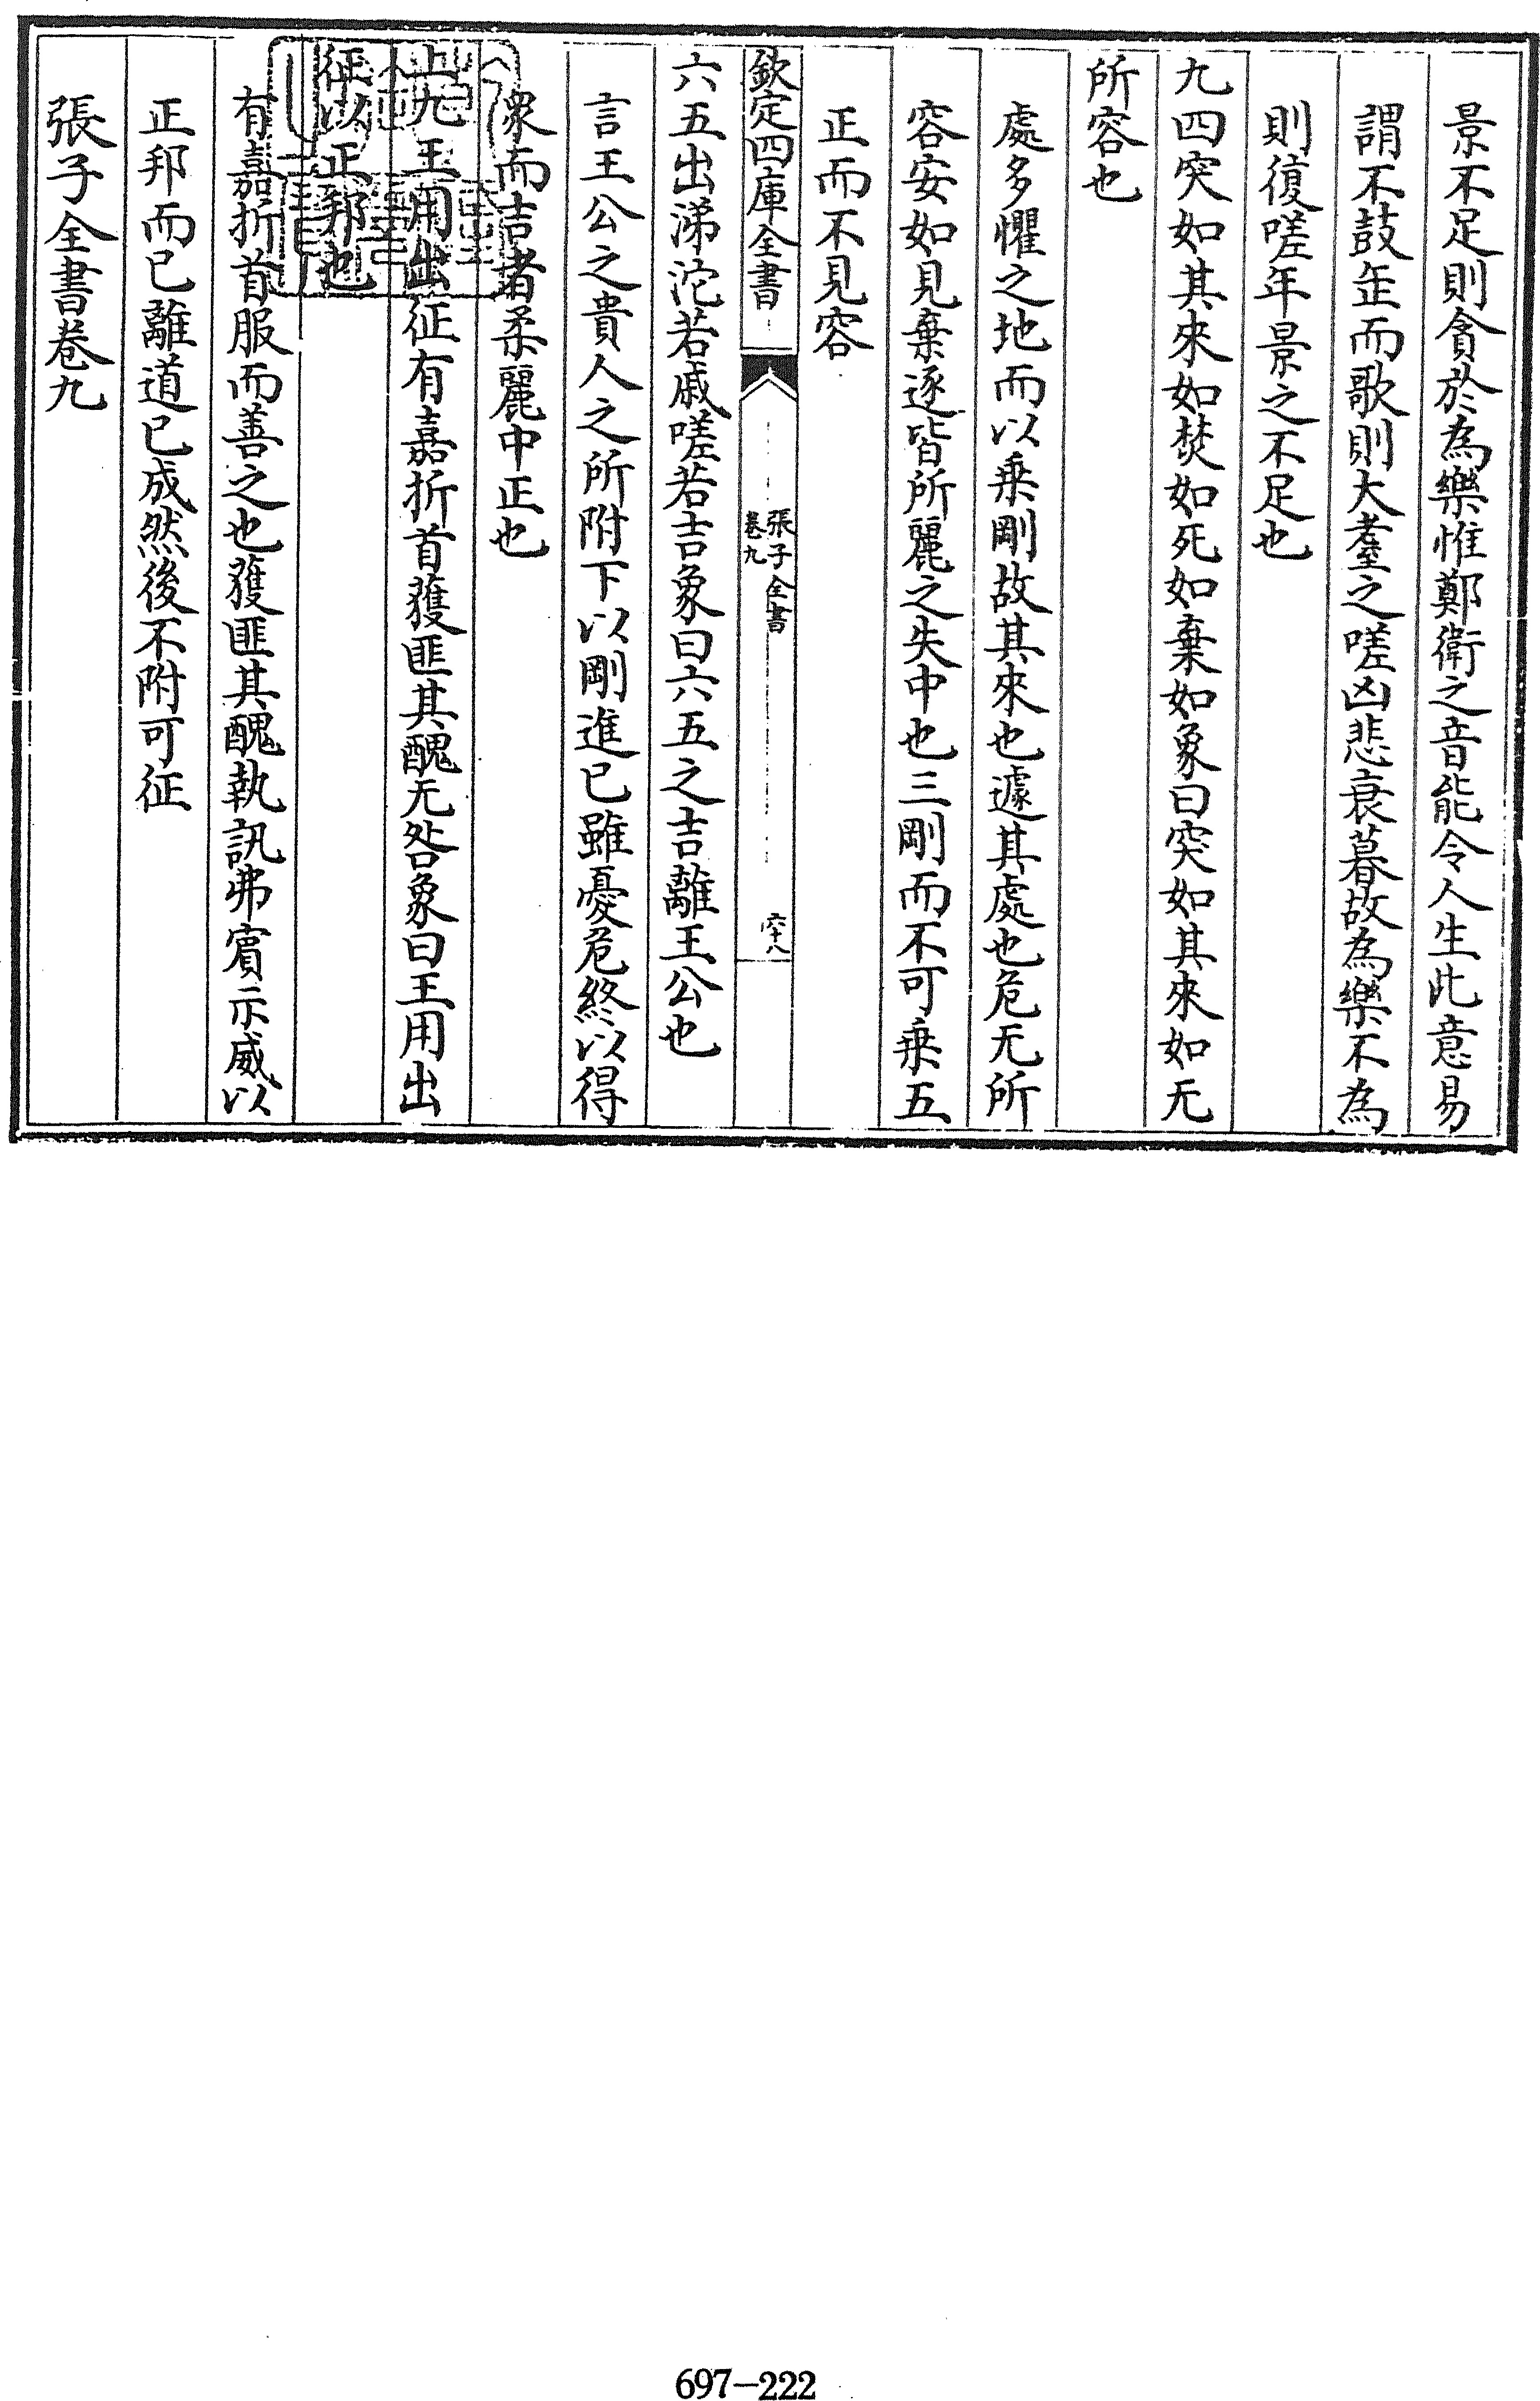 景不足則貪於為樂惟鄭衛之音能令人生此意易
謂不鼓缶而歌則大耋之嗟凶悲衰暮故為樂不為
則復嗟年景之不足也
九四突如其來如焚如死如棄如象曰突如其來如无
所容也
處多懼之地而以乗剛故其來也遽其處也危无所
容安如見棄逐皆所麗之失中也三剛而不可乗五
正而不見容
欽定四庫全書
張子全書
卷九
六十八
六五出涕沱若戚嗟若吉象曰六五之吉離王公也
言王公之貴人之所附下以剛進已雖憂危終以得
衆而吉者柔麗中正也
上九王用出征有嘉折首獲匪其醜无咎象曰王用出
征以正邦也
有嘉折首服而善之也獲匪其醜執訊弗賔示威以
正邦而已離道已成然後不附可征
張子全書卷九
697-222